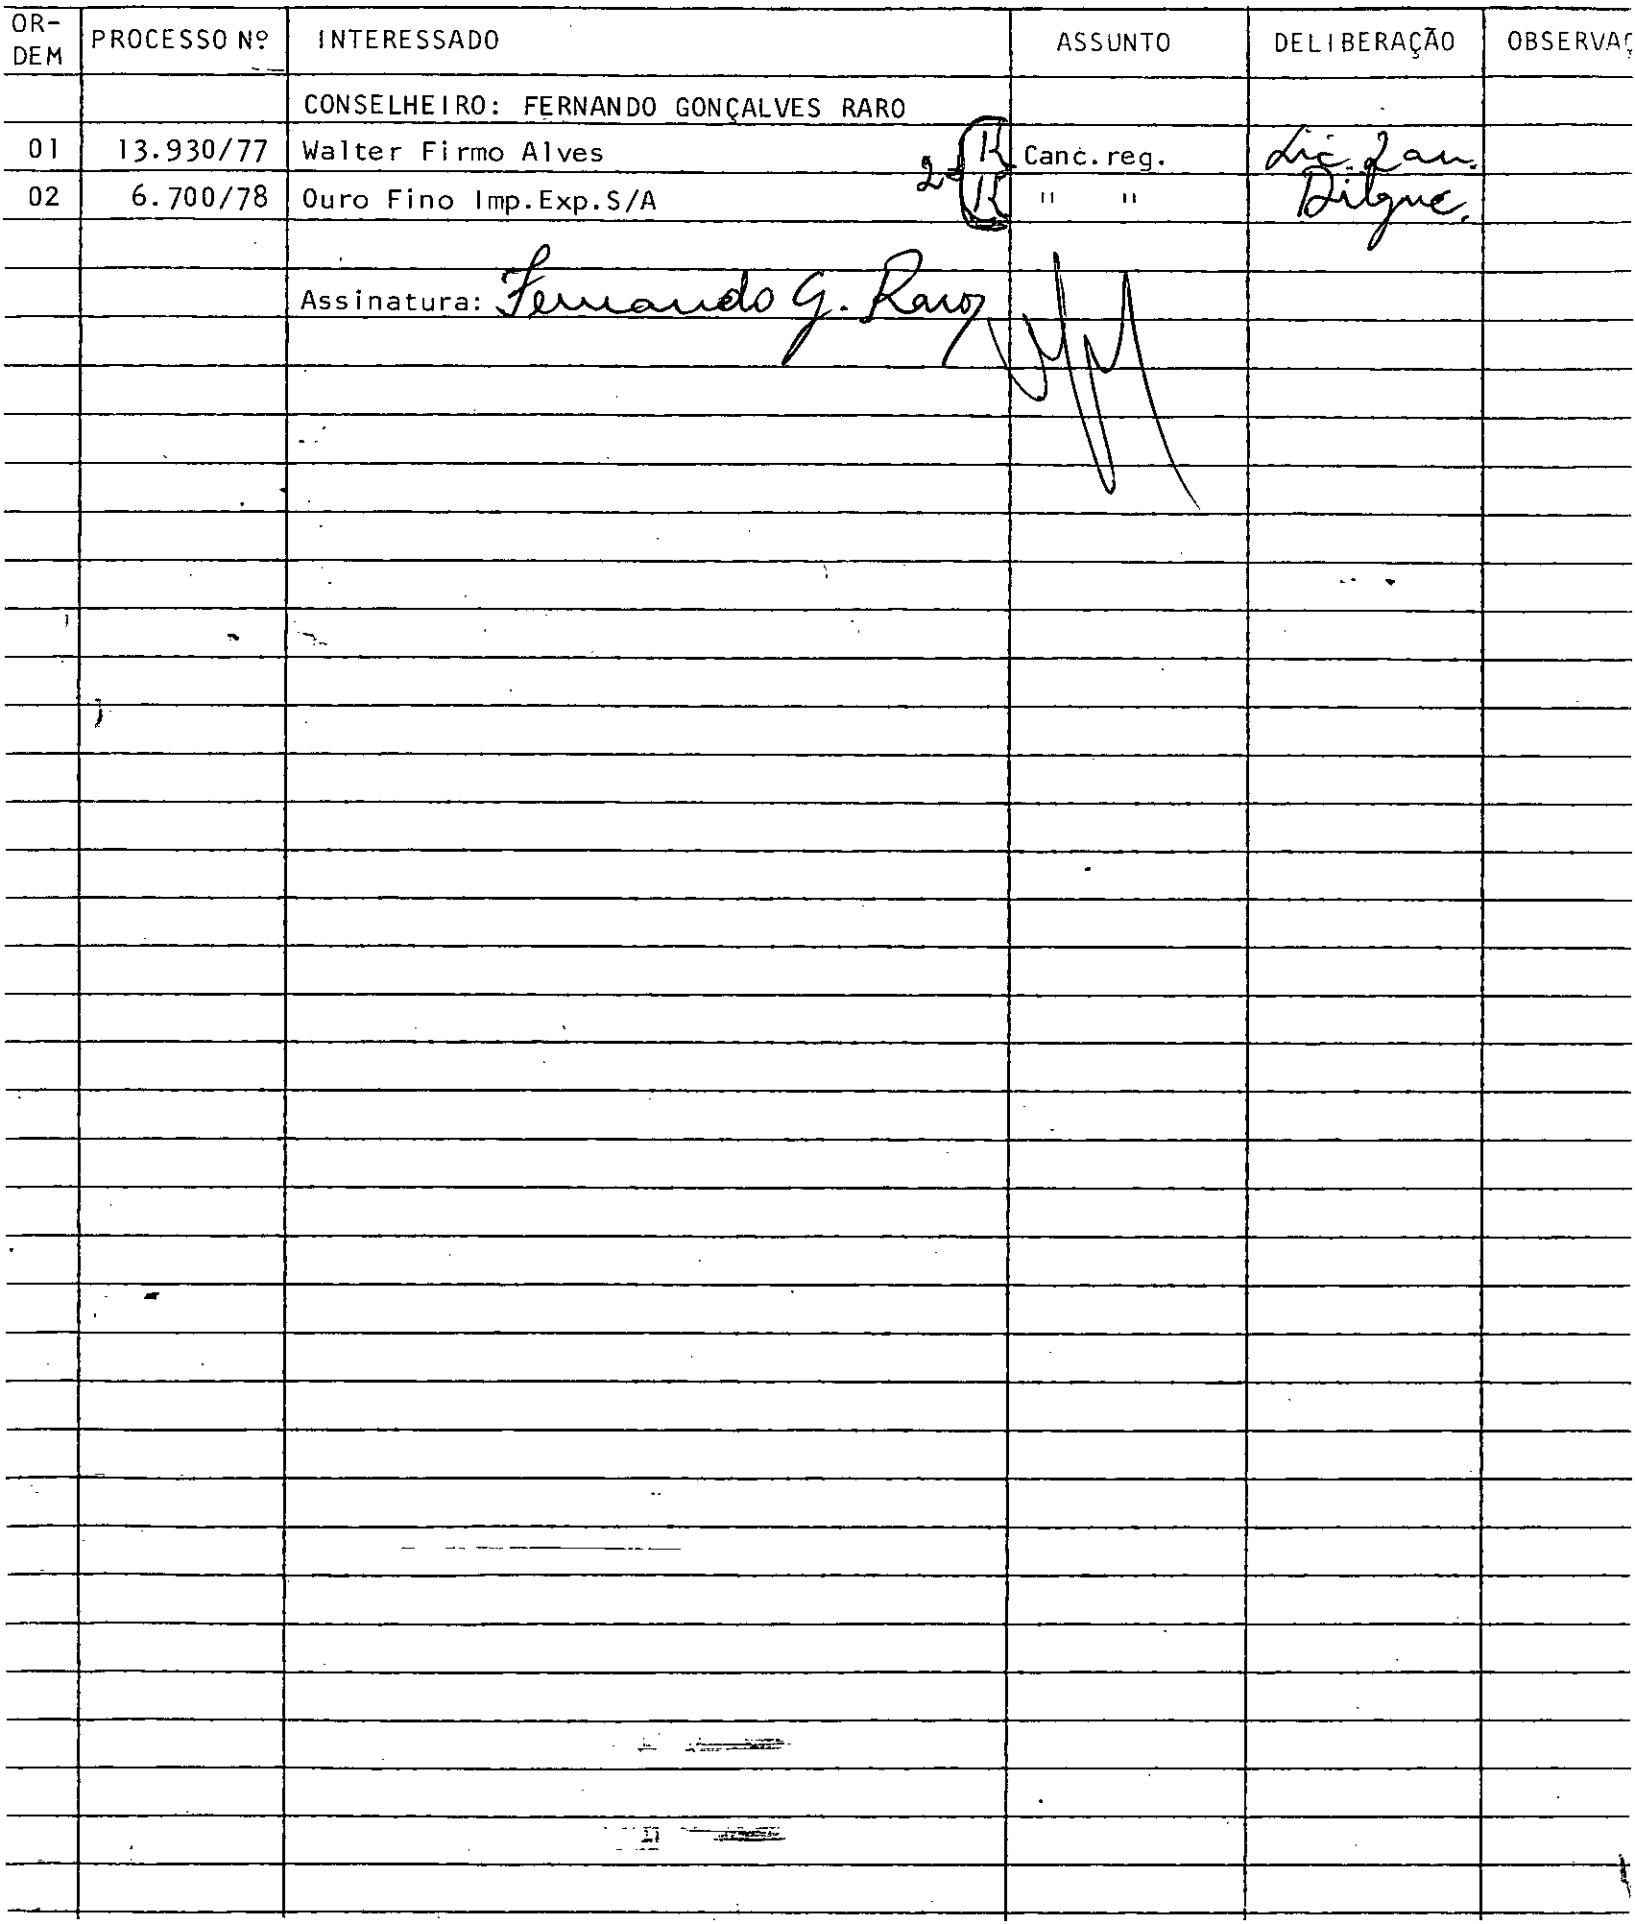 OR-
DEM PROCESSO Nº INTERESSADO ASSUNTO DELIBERAÇÃO OBSERVAÇ
CONSELHEIRO: FERNANDO GONÇALVES RARO
01 13.930/77 Walter Firmo Alves 2 R Canc.reg.
02 6.700/78 Ouro Fino Imp.Exp.S/A R " "
Assinatura: Fernando G. Raro